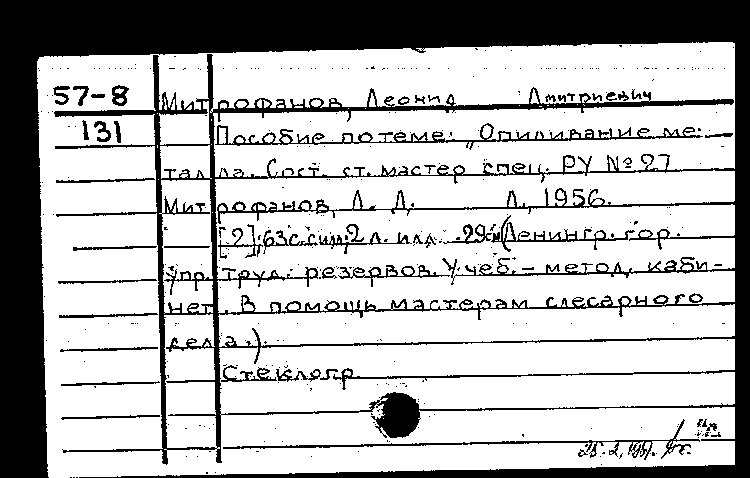 57-8 Митрофанов, Леонид Дмитриевич
131 Пособие по теме: „Опиливание ме-
талла. Сост. ст. мастер спец. РУ №27
Митрофанов, Л. Д. Л., 1956.
[2], 63 с. с илл; 2 л. илл. 29см (Ленингр. гор.
упр. труд. резервов. Учеб.-метод. каби-
нет. В помощь мастерам слесарного
дела.).
Стеклогр